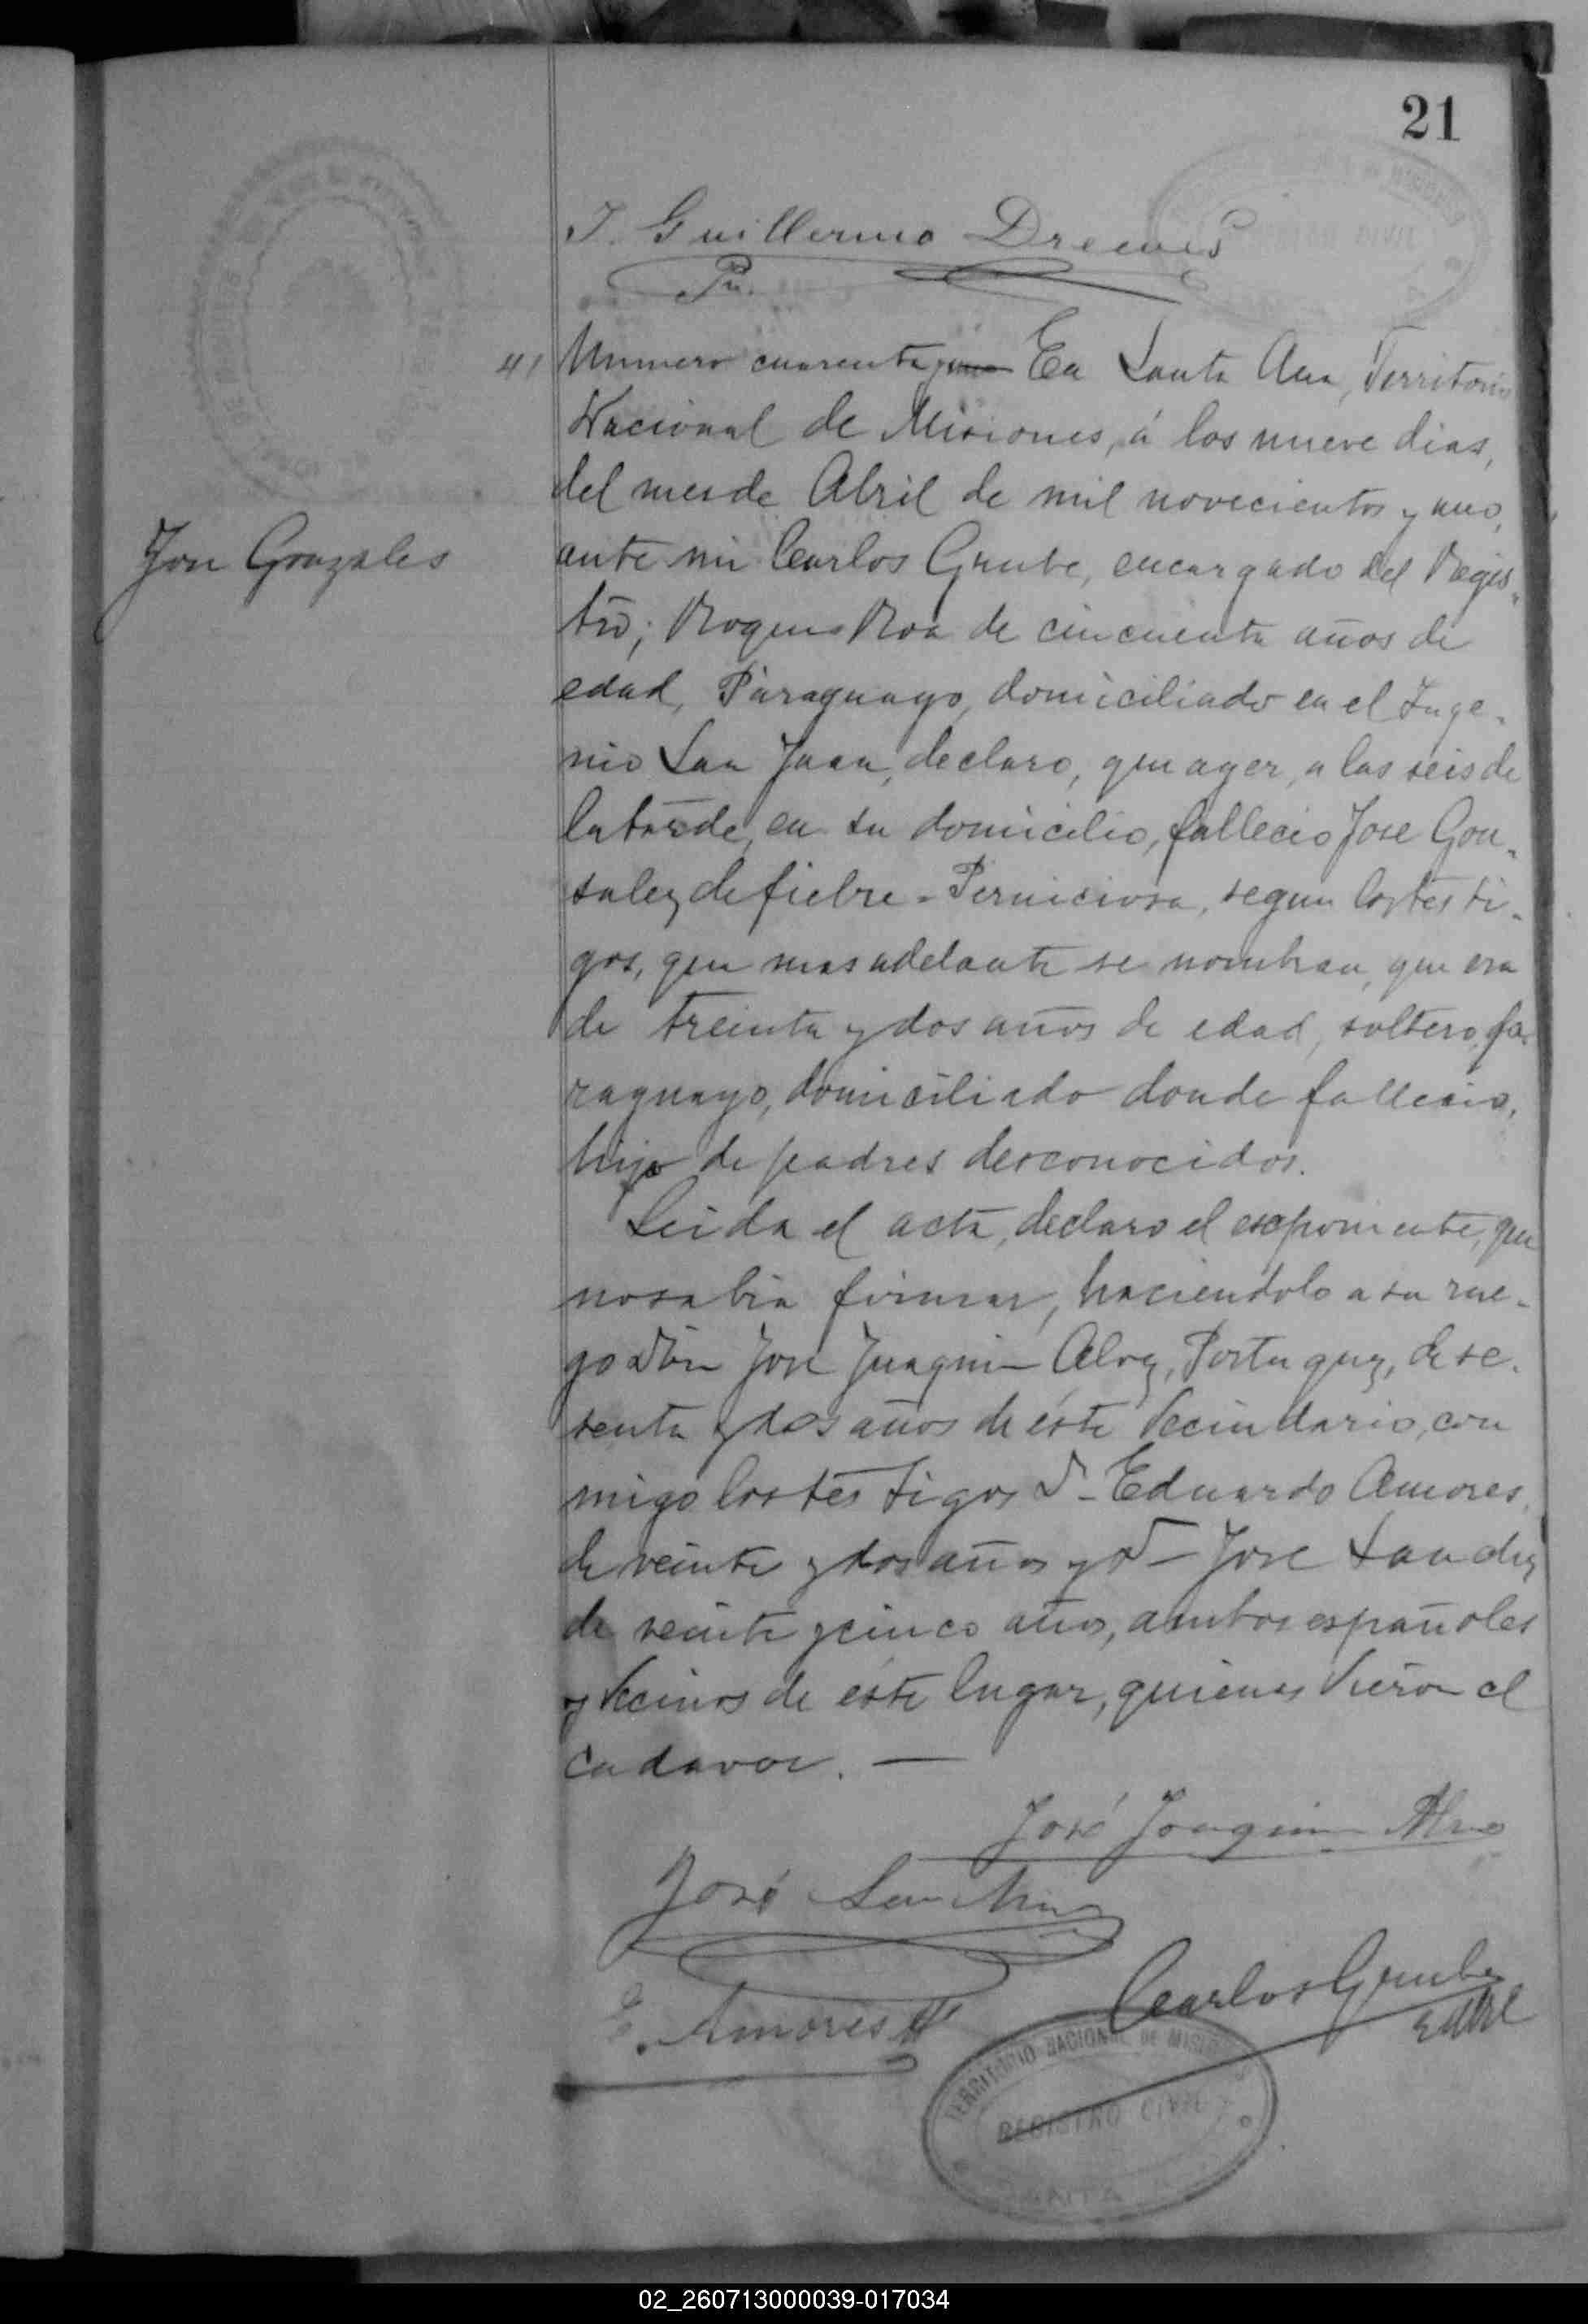 21
J. Guillermo Drewes
41 Numero cuarenta y uno En Santa Ana, Territorio
Nacional de Misiones, á los nueve dias,
del mes de Abril de mil novecientos y uno,
Jose Gonzales
ante mi Carlos Grube, encargado del Regis-
tro; Roque Roa de cincuenta años de
edad, Paraguayo, domiciliado en el Inge-
nio San Juan, declaro, que ayer, a las seis de
la tarde, en su domicilio, fallecio Jose Gon-
salez de fiebre-Perniciosa, segun los testi-
gos, que mas adelante se nombran, que era
de treinta y dos años de edad, soltero, pa-
raguayo, domiciliado donde fallecio,
hijo de padres desconocidos.
Leida el acta, declaro el exponente, que
no sabia firmar, haciendolo a su rue-
go Don Jose Juaquin Alvez, Portuguez, de se-
senta y dos años de éste Vecindario, con
migo los testigos Dn Eduardo Amores,
de veinte y dos años y Dn Jose Sanchez
de veinte y cinco años, ambos españoles
y Vecinos de éste lugar, quienes Vieron el
cadaver. —
José Joaquim Alves
José Sanchez
Carlos Grube
E. Amores
TERRITORIO NACIONAL DE MISIONES
REGISTRO CIVIL
SANTA
02_260713000039-017034